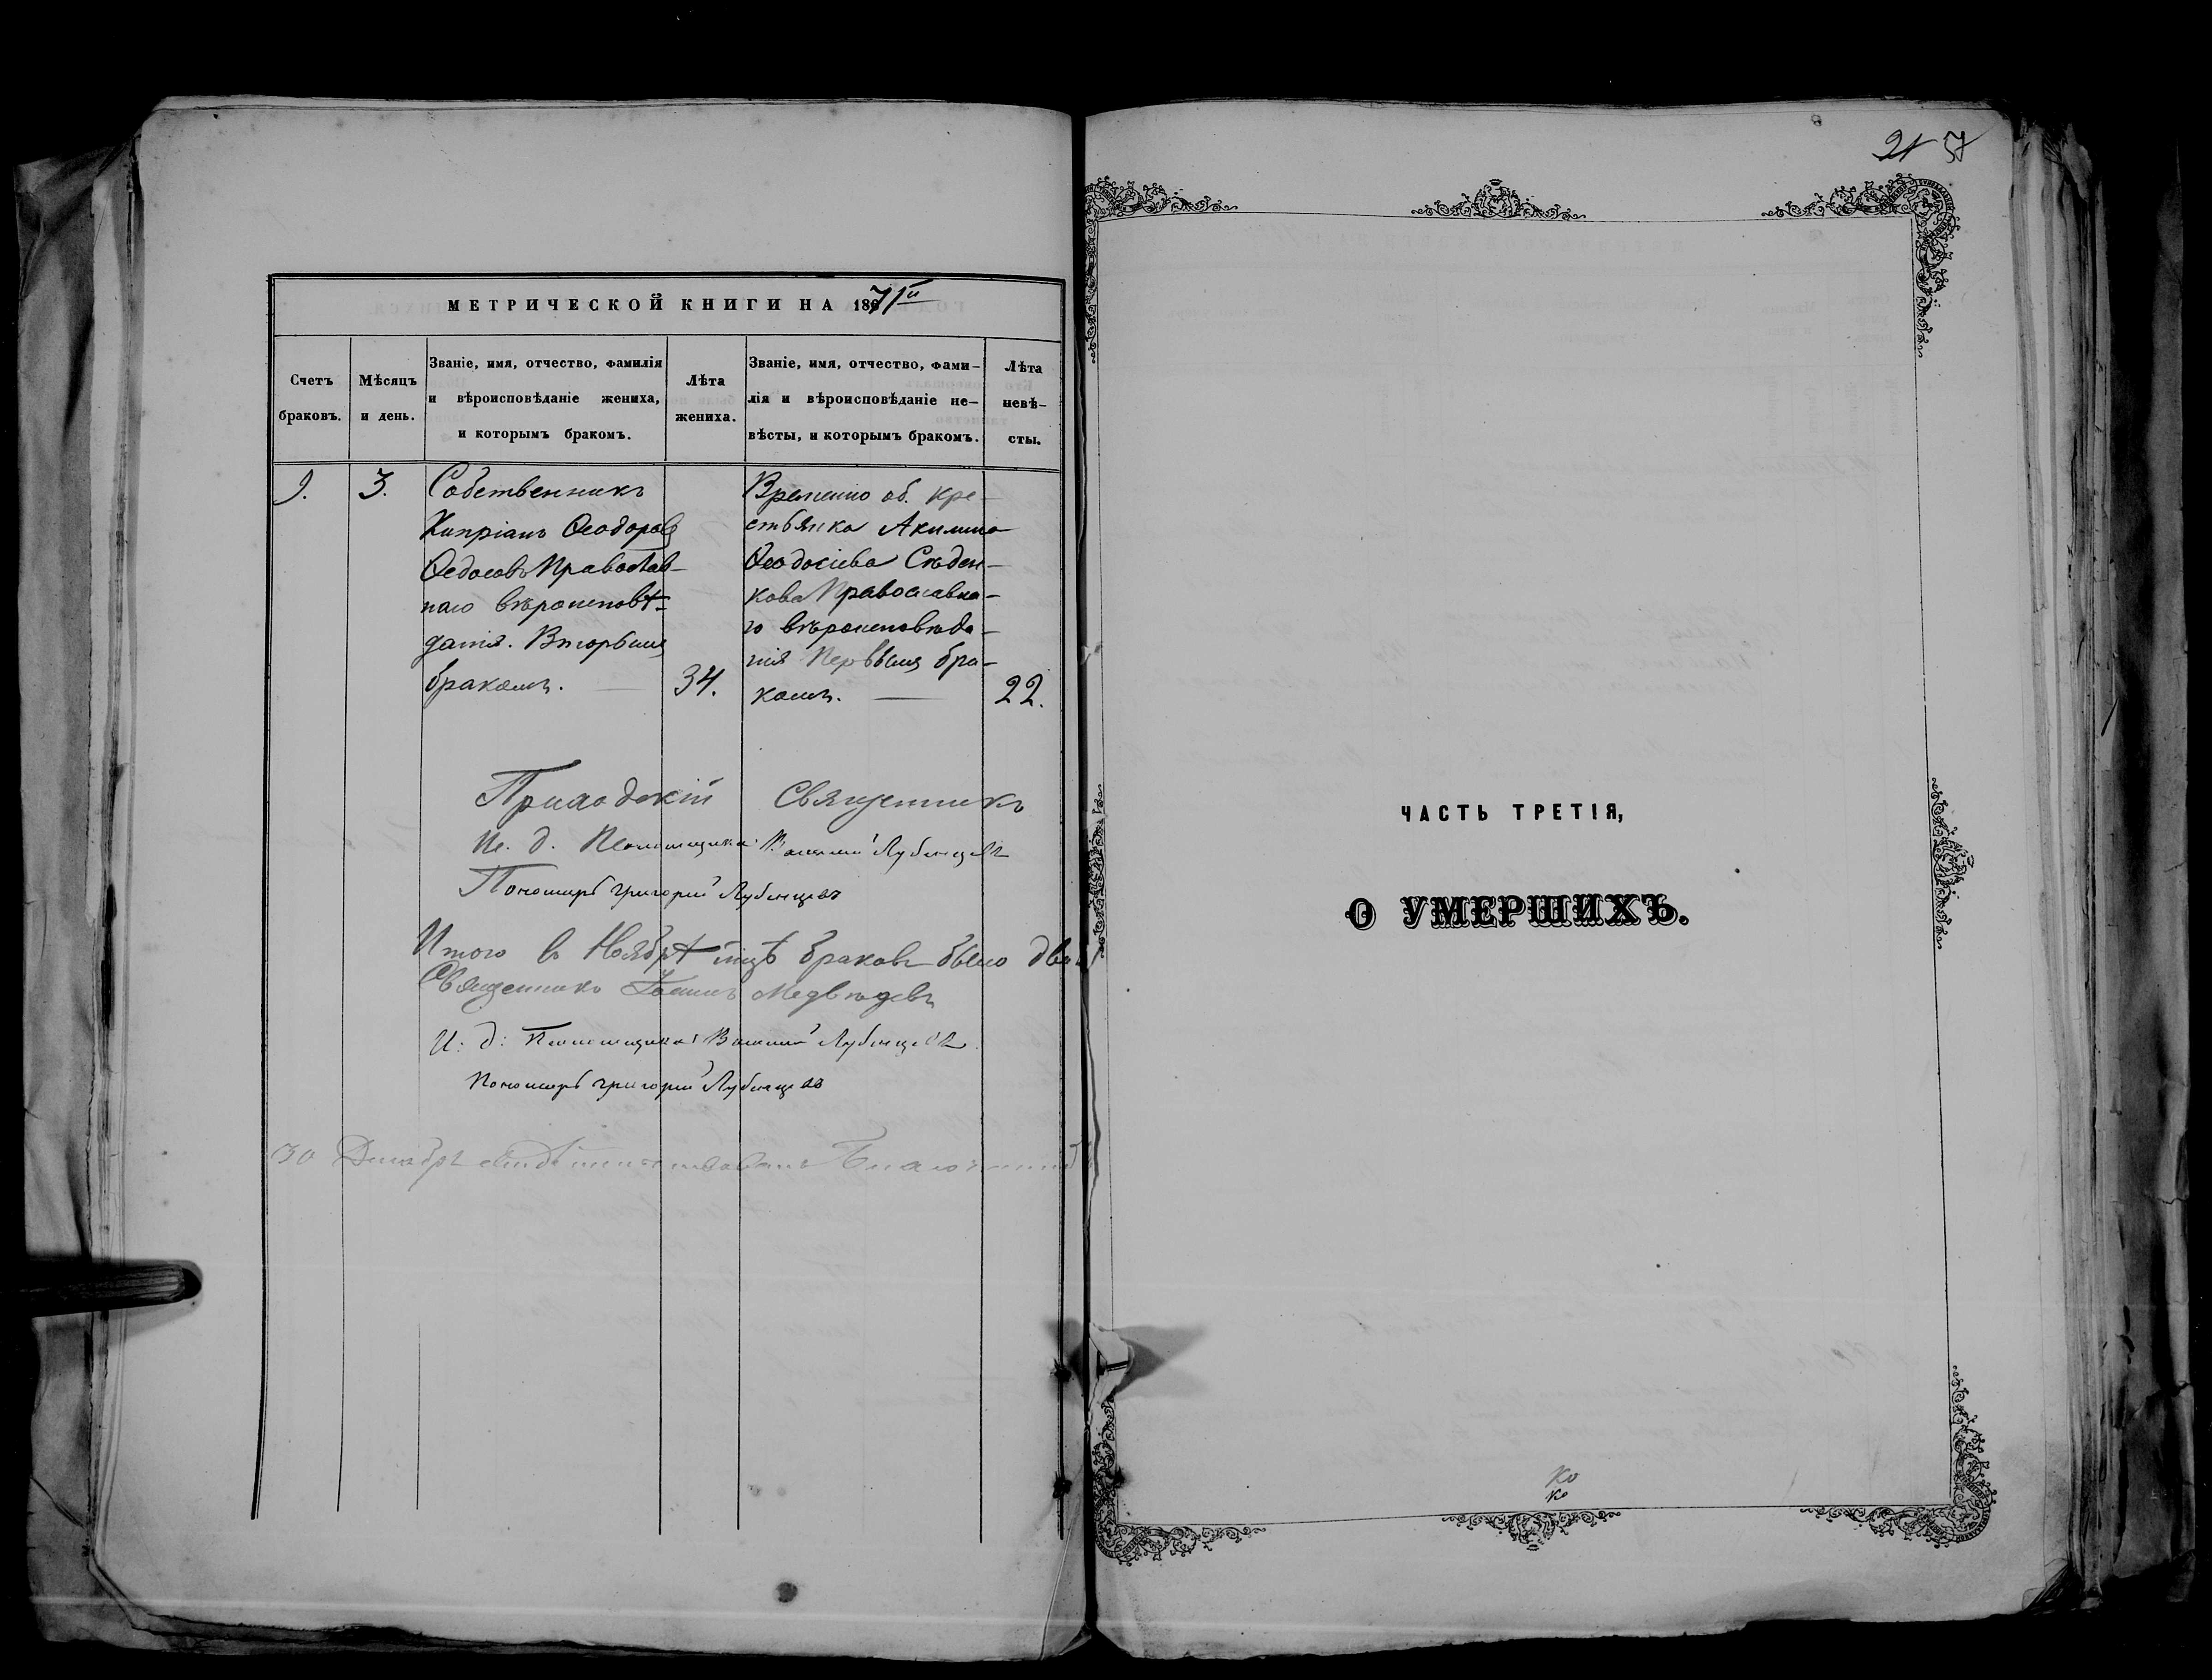 МЕТРИЧЕСКОЙ КНИГИ НА 1871й
Счетъ браковъ.
Мѣсяцъ и день.
Званіе, имя, отчество, фамилія
и вѣроисповѣданіе жениха,
и которымъ бракомъ.
Лѣта жениха.
Званіе, имя, отчество, фами-
лія и вѣроисповѣданіе не-
вѣсты, и которымъ бракомъ.
Лѣта
невѣ-
сты.
9.
3.
Собственникъ
Кипріанъ Ѳеодоровъ
Ѳедосовъ Православ-
наго вѣроисповѣ-
данія. Вторымъ
бракомъ.
34.
Временно об. кре-
стьянка Акилина
Ѳеодосіева Сѣден-
кова Православна-
го вѣроисповѣда-
нія Первымъ бра-
комъ.
22.
Приходскій Священникъ
И. д. Псаломщика: Василій Лубенцовъ
Пономарь Григорій Лубенцовъ
Итого въ Ноябрѣ мцѣ браковъ было два
Священникъ Іоаннъ Медвѣдевъ
И: д: Псаломщика: Василій Лубенцовъ
Пономарь Григорій Лубенцовъ
30 Декабря
21 57
ЧАСТЬ ТРЕТІЯ,
О УМЕРШИХЪ.
Ко
Ко